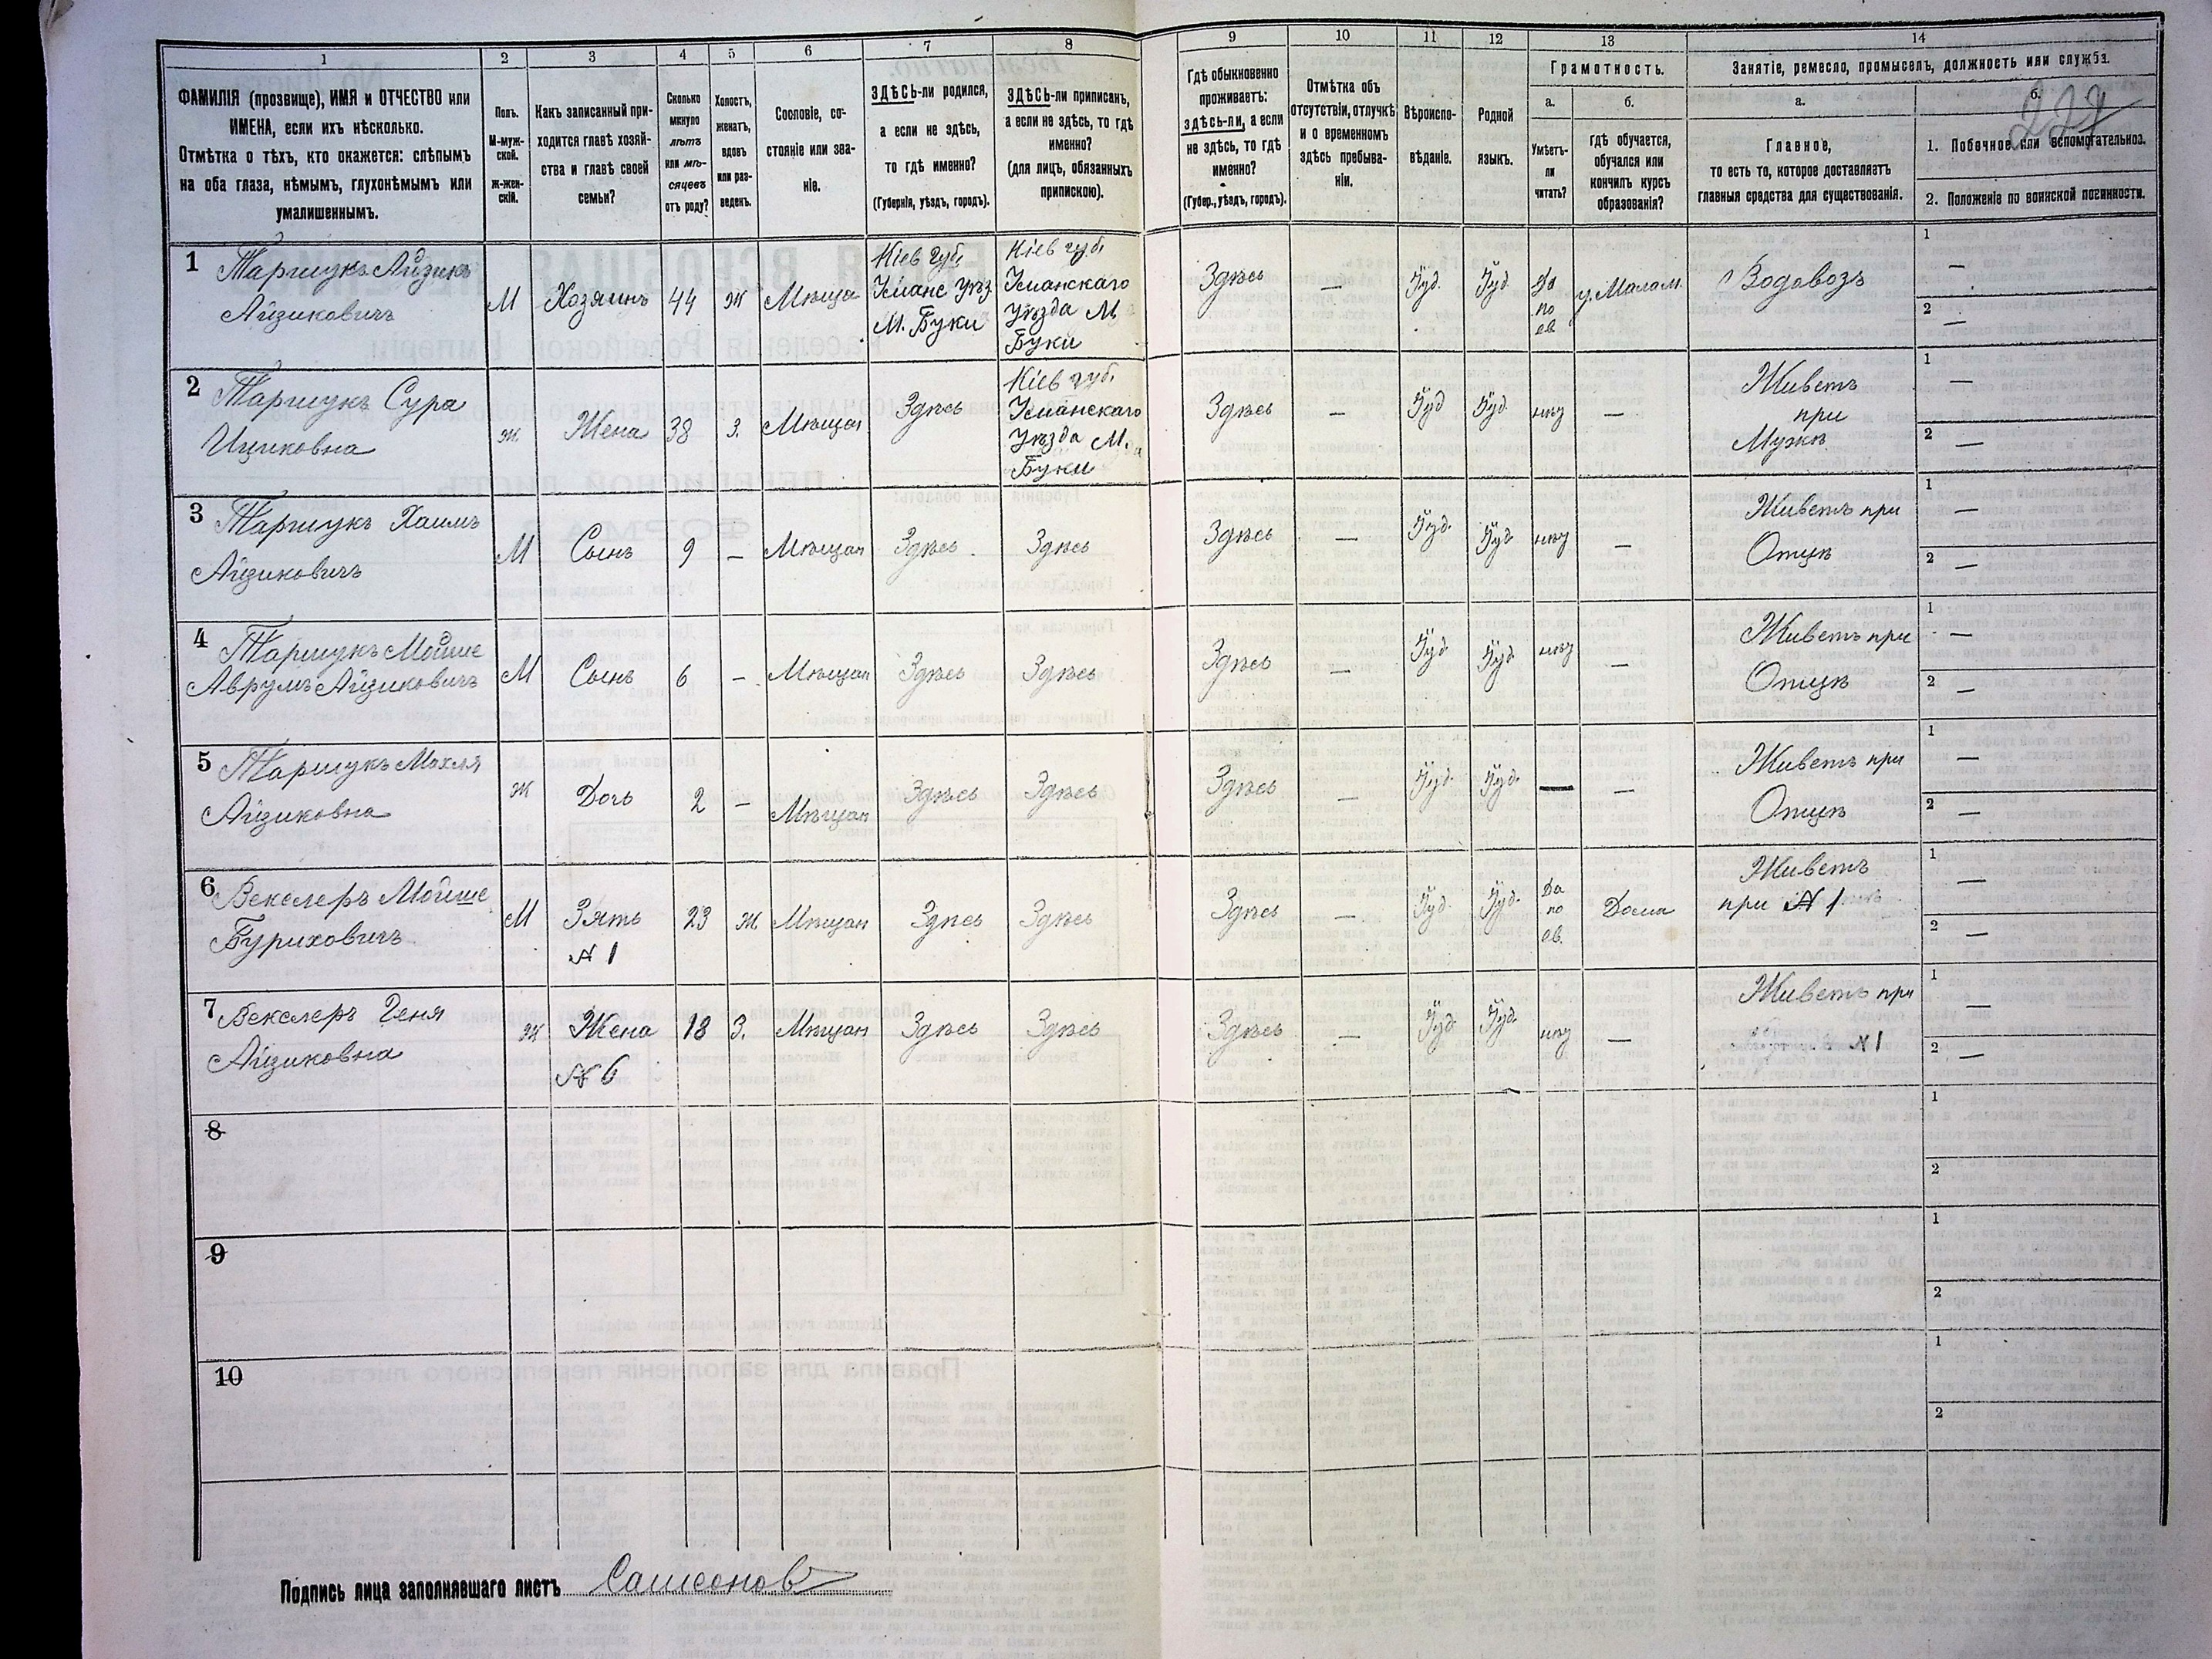 1 2 3 4 5 6 7 8 9 10 11 12 13 14
ФАМИЛІЯ (прозвище), ИМЯ и ОТЧЕСТВО или
ИМЕНА, если ихъ нѣсколько.
Отмѣтка о тѣхъ, кто окажется: слѣпымъ
на оба глаза, нѣмымъ, глухонѣмымъ или
умалишеннымъ.
Полъ.
М-муж-
ской.
ж-жен-
скій.
Какъ записанный при-
ходится главѣ хозяй-
ства и главѣ своей
семьи?
Сколько
минуло
лѣтъ
или мѣ-
сяцевъ
отъ роду?
Холостъ,
женатъ,
вдовъ
или раз-
веденъ.
Сословіе, со-
стояніе или зва-
ніе.
ЗДѢСЬ-ли родился,
а если не здѣсь,
то гдѣ именно?
(Губернія, уѣздъ, городъ).
ЗДѢСЬ-ли приписанъ,
а если не здѣсь, то гдѣ
именно?
(для лицъ, обязанныхъ
припискою).
Гдѣ обыкновенно
проживаетъ:
здѣсь-ли, а если
не здѣсь, то гдѣ
именно?
(Губер., уѣздъ, городъ).
Отмѣтка объ
отсутствіи, отлучкѣ
и о временномъ
здѣсь пребыва-
ніи.
Вѣроиспо-
вѣданіе.
Родной
языкъ.
Грамотность.
а.
Умѣетъ-
ли
читать?
б.
гдѣ обучается,
обучался или
кончилъ курсъ
образованія?
Занятіе, ремесло, промыселъ, должность или служба.
а.
Главное,
то есть то, которое доставляетъ
главныя средства для существованія.
б.
1. Побочное или вспомогательное.
2. Положеніе по воинской повинности.
227
1 Таршукъ Айзикъ
Айзиковичъ
М
Хозяинъ
44
Ж
Мѣща
Кіев губ.
Уманс уѣз
М. Буки
Кіев губ.
Уманскаго
уѣзда М.
Буки
Здѣсь
—
Іуд.
Іуд.
Да
по
ев.
у. Малам.
Водовозъ
1 —
2 —
2 Таршукъ Сура
Ициковна
ж
Жена
38
З.
Мѣщан
Здѣсь
Кіев губ.
Уманскаго
уѣзда М.
Буки
Здѣсь
—
Іуд
Іуд.
нѣт
—
Живетъ
при
Мужѣ
1 —
2 —
3 Таршукъ Хаимъ
Айзиковичъ
М
Сынъ
9
—
Мѣщан
Здѣсь
Здѣсь
Здѣсь
—
Іуд.
Іуд
нѣт
—
Живетъ при
Отцѣ
1 —
2 —
4 Таршукъ Мойше
Аврумъ Айзиковичъ
М
Сынъ
6
—
Мѣщан
Здѣсь
Здѣсь
Здѣсь
—
Іуд
Іуд.
нѣт
—
Живетъ при
Отцѣ
1 —
2 —
5 Таршукъ Махля
Айзиковна
Ж
Дочь
2
—
Мѣщан
Здѣсь
Здѣсь
Здѣсь
—
Іуд.
Іуд.
—
—
Живетъ при
Отцѣ
1 —
2 —
6 Векслеръ Мойше
Буриховичъ
М
Зять
№ 1
23
Ж
Мѣщан
Здѣсь
Здѣсь
Здѣсь
—
Іуд.
Іуд.
Да
по
ев.
Дома
Живетъ
при № 1
1 —
2 —
7 Векслеръ Геня
Айзиковна
Ж
Жена
№ 6
18
З.
Мѣщан
Здѣсь
Здѣсь
Здѣсь
—
Іуд.
Іуд.
нѣт
—
Живетъ при
№ 1
1 —
2 —
8
1
2
9
1
2
10
1
2
Подпись лица заполнявшаго листъ Самсонов